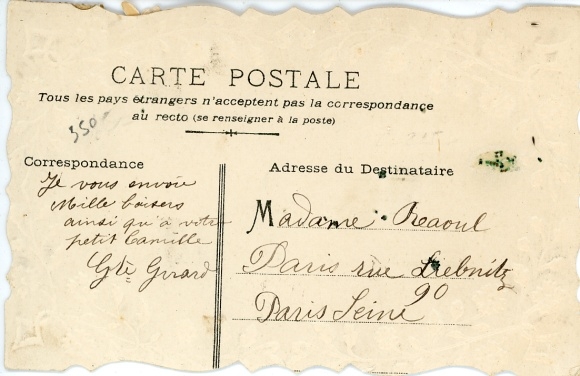 CARTE POSTALE
Tous les pays étrangers n'acceptent pas la correspondance
au recto (se renseigner à la poste)
350
Correspondance
Je vous envoie
Mille baisers
ainsi qu'à votre
petit Camille
Gte Girard
Adresse du Destinataire
Madame Raoul
Paris rue Liebnitz
90
Paris Seine